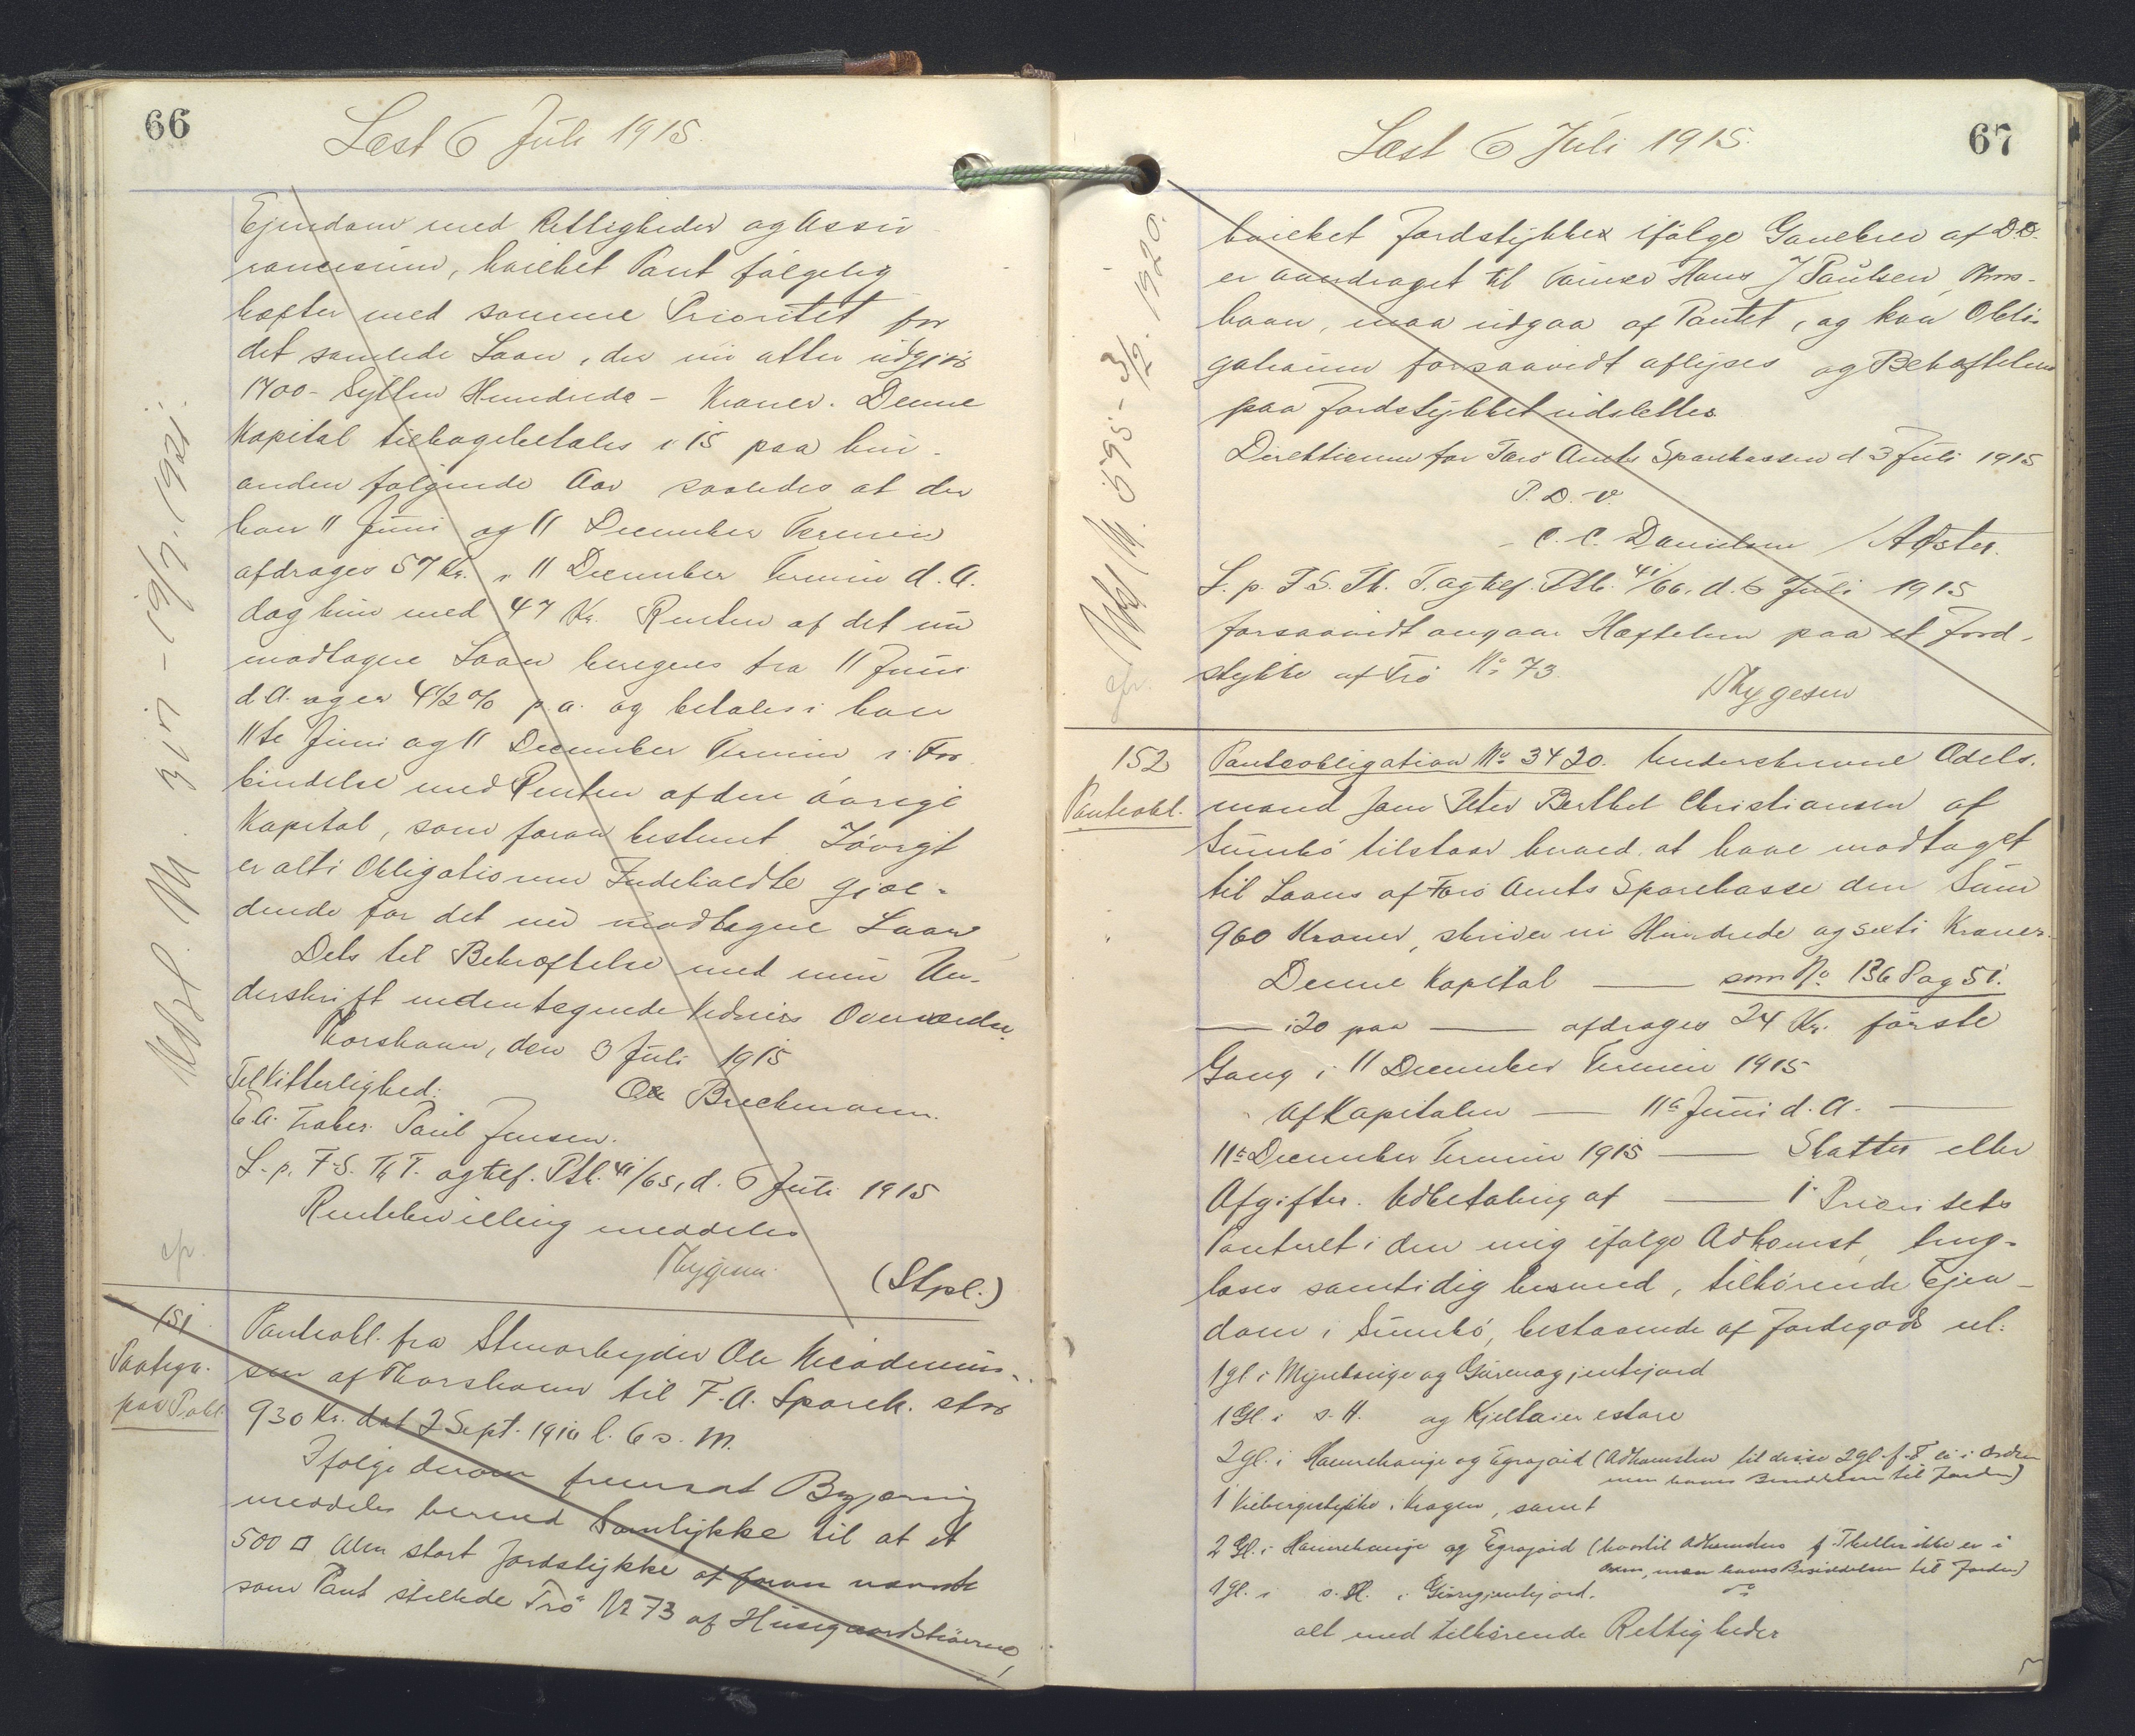 66
Læst 6 Juli 1915.
Ejendom med Rettigheder og Assu-
rancesum, hvilket Pant følgelig
hæfter med samme Prioritet for
det samlede Laan, der nu atter udgjør
1700 - Sytten Hundrede - Kroner. Denne
Kapital tilbagebetales i 15 paa hin-
anden følgende Aar saaledes at der
hver 11 Juni og 11 December Termin
afdrages 57 Kr. i 11 December Termin d. A.
dog kun med 47 Kr. Renten af det nu
modtagne Laan beregnes fra 11 Juni
d. A. og er 4½ % p. a. og betales i hver
11te Juni og 11 December Termin i For-
bindelse med Renten af den øvrige
Kapital, som foran bestemt. Iøvrigt
er alt i Obligationen Indeholdte gjæl-
dende for det nu modtagne Laan
Dets til Bekræftelse med min Un-
derskrift undertegnede Vidners Overværelse
Thorshavn, den 3 Juli 1915
Ole Breckmann.
Til Vitterlighed:
Poul Jensen.
L. p. F. S. Th T. og tilf. Ptb. 41/65, d. 6 Juli 1915
Rentebevilling meddeles
Thygesen
(Stpl.)
Udsl. M. 19/7. 1921.
cfr.
151
Paategn.
paa Pobl.
Panteobl. fra Stenarbejder Ole Nicodemus-
sen af Thorshavn til F. A. Spark. stor
930 Kr. dat 2 Sept. 1910 l. 6 s. M.
Ifølge derom fremsat Begjæring
meddeles herved Samtykke til at et
500 □ Alen stort Jordstykke af foran nævnte
som Pant stillede Trø No 73 af Husegaardstrøerne,
67
Læst 6 Juli 1915.
hvilket Jordstykke ifølge Gavebrev af D. D.
er overdraget til Hans J Paulsen, Thors-
havn, maa udgaa af Pantet, og kan Obli-
gationen forsaavidt aflyses og Behæftelsen
paa Jordstykket udslettes
Direktionen for Færø Amts Sparekassen d 3 Juli 1915
P. D. V.
C. C. Danielsen / A Öster.
L. p. F S. Th. T. og tilf. Ptb. 41/66. d. 6 Juli 1915
forsaavidt angaar Hæftelsen paa et Jord-
stykke af Trø No 73.
Thygesen
Udsl M. 595 - 3/2. 1920.
cfr.
152
Panteobl.
Panteobligation No 3420. Underskrevne Odels-
mand Jens Peter Berthel Christiansen af
Sumbø tilstaar herved at have modtaget
til Laans af Færø Amts Sparekasse den Sum
960 Kroner, skriver ni Hundrede og sexti Kroner.
Denne Kapital — som No 136 Pag 51.
— i 20 paa — afdrages 24 Kr. første
Gang i 11 December Termin 1915
Af Kapitalen — 11te Juni d. A. —
11te December Termin 1915 — Skatter eller
Afgifter. Udbetaling af — 1. Prioritets
Panteret i den mig ifølge Adkomst, ting-
læses samtidig hermed, tilhørende Ejen-
dom i Sumbø, bestaaende af Jordegods nl:
1 Gl. i s. H. og
2 gl. i Hamrehauge og Egrajord (Adkomsten til disse 2 gl. f. T. ei i Orden
men haves Besiddelsen til Jorden)
1 i Kragen, samt
2 Gl. i Hamrehauge og Egrajord (hvortil Adkomsten f. Tiden ikke er i
Orden, men haves Besiddelsen til Jorden)
1 gl. i s. H. i
alt med tilhørende Rettigheder